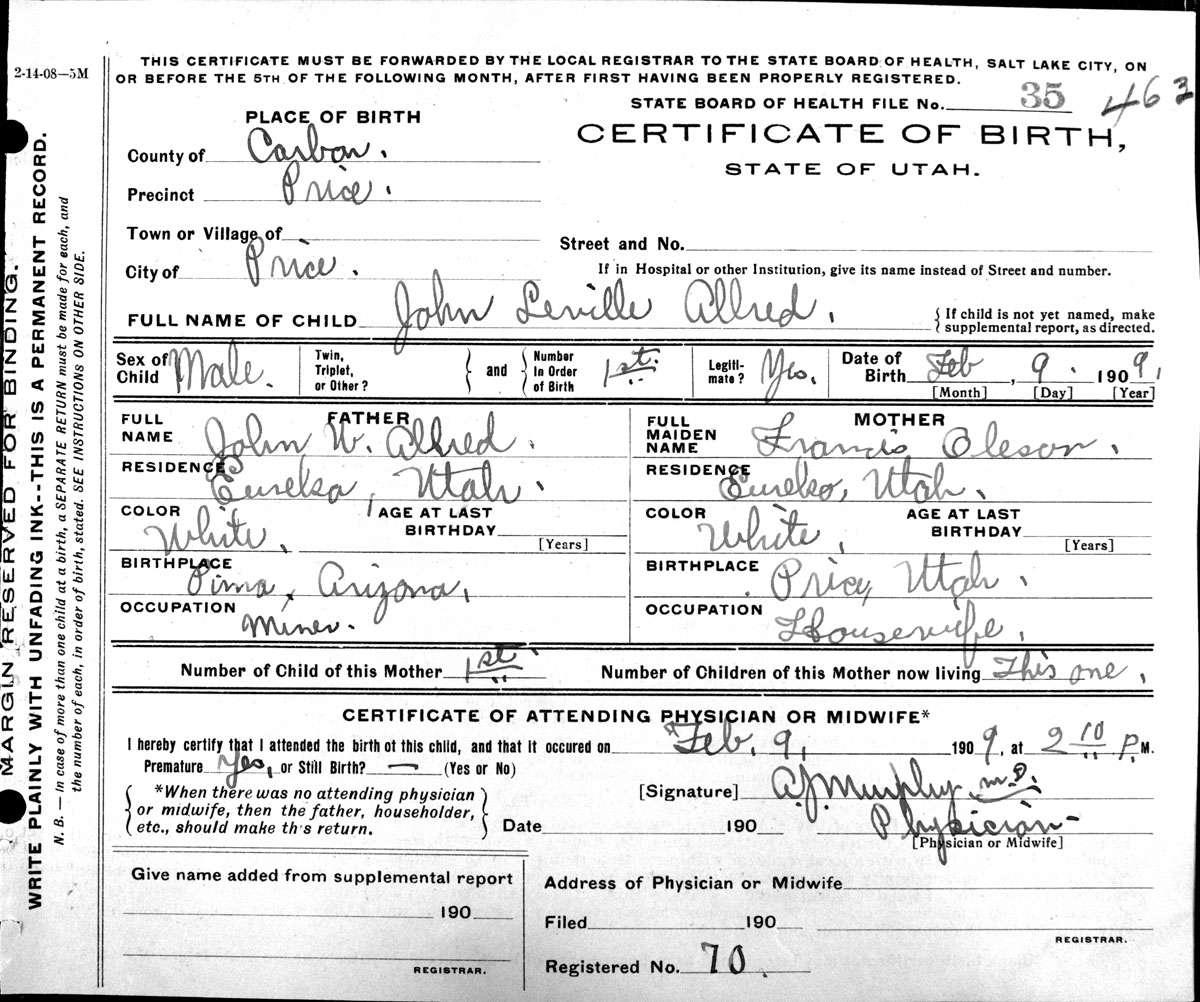 2-14-08—5M
THIS CERTIFICATE MUST BE FORWARDED BY THE LOCAL REGISTRAR TO THE STATE BOARD OF HEALTH, SALT LAKE CITY, ON
OR BEFORE THE 5TH OF THE FOLLOWING MONTH, AFTER FIRST HAVING BEEN PROPERLY REGISTERED.
STATE BOARD OF HEALTH FILE No. 35 463
CERTIFICATE OF BIRTH,
STATE OF UTAH.
PLACE OF BIRTH
County of Carbon.
Precinct Price.
Town or Village of
City of Price.
Street and No.
If in Hospital or other Institution, give its name instead of Street and number.
FULL NAME OF CHILD John Leville Allred.
{ If child is not yet named, make
supplemental report, as directed.
Sex of Child Male. Twin, Triplet, or Other? } and { Number In Order of Birth 1st. Legitimate? Yes. Date of Birth Feb, 9. 1909,
[Month] [Day] [Year]
FATHER
FULL NAME John W. Allred.
RESIDENCE Eureka, Utah.
COLOR White. AGE AT LAST BIRTHDAY
[Years]
BIRTHPLACE Pima, Arizona,
OCCUPATION Miner.
MOTHER
FULL MAIDEN NAME Francis Oleson.
RESIDENCE Eureka, Utah.
COLOR White, AGE AT LAST BIRTHDAY
[Years]
BIRTHPLACE Price, Utah.
OCCUPATION Housewife.
Number of Child of this Mother 1st. Number of Children of this Mother now living This one,
CERTIFICATE OF ATTENDING PHYSICIAN OR MIDWIFE*
I hereby certify that I attended the birth of this child, and that it occured on Feb. 9, 1909, at 2 10 P.M.
Premature Yes, or Still Birth? — (Yes or No)
{ *When there was no attending physician
or midwife, then the father, householder,
etc., should make th's return. }
[Signature] A J Murphy m.D.
Date 190 Physician-
[Physician or Midwife]
Give name added from supplemental report
190
REGISTRAR.
Address of Physician or Midwife
Filed 190
REGISTRAR.
Registered No. 70.
MARGIN RESERVED FOR BINDING.
WRITE PLAINLY WITH UNFADING INK--THIS IS A PERMANENT RECORD.
N. B.— In case of more than one child at a birth, a SEPARATE RETURN must be made for each, and
the number of each, in order of birth, stated. SEE INSTRUCTIONS ON OTHER SIDE.